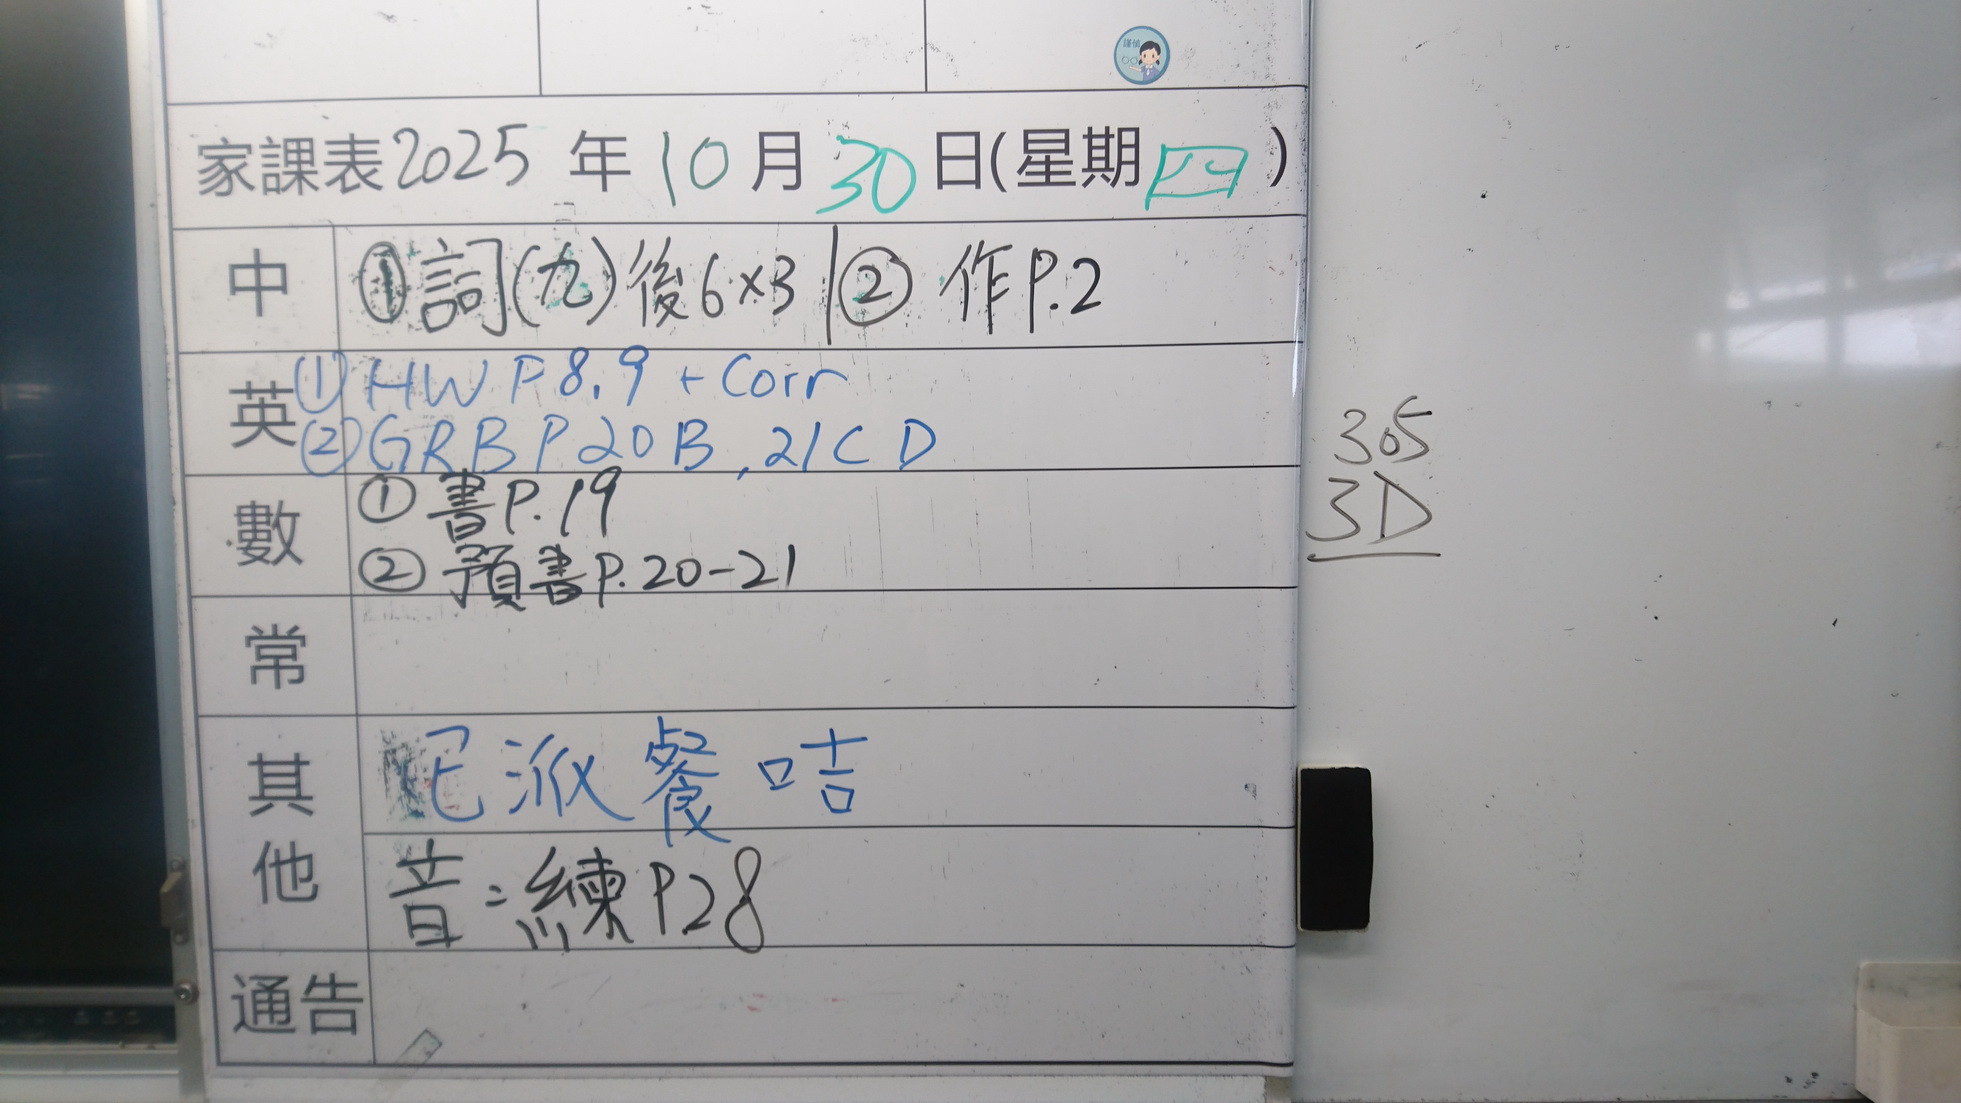 謹慎
家課表2025年10月30日(星期四)
中 ①詞(九)後6×3|②作P.2
英 ①HW P8,9 + Corr
②GRB P20B,21CD
數 ①書P.19
②預書P.20-21
常
其他 已派餐咭
音:練P28
通告
305
3D